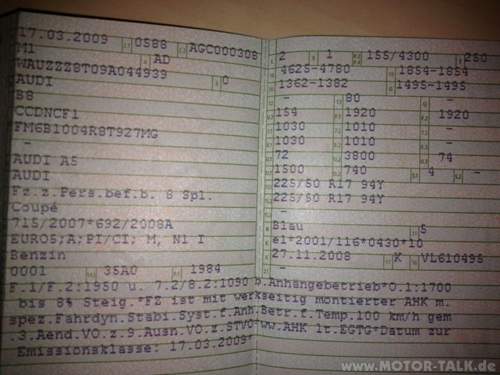 17.03.2009 0588 AGC000308
M1 AD
WAUZZZ8T09A044939 0
AUDI
B8
CCDNCF1
FM6B1004R8T927MG
-
AUDI A5
AUDI
Fz.z.Pers.bef.b. 8 Spl.
Coupé
715/2007*692/2008A
EURO5;A;PI/CI; M, N1 I
Benzin
0001 35A0 1984
2 1 155/4300 250
4625-4780 1854-1854
1362-1382 1495-1495
- 80 -
154 1920 1920
1030 1010 -
1030 1010 -
72 3800 74
1500 740 4 -
225/50 R17 94Y
225/50 R17 94Y
-
Blau 5
e1*2001/116*0430*10
27.11.2008 K VL610495
F.1/F.2:1950 u. 7.2/8.2:1090 b.Anhängebetrieb*O.1:1700
bis 8% Steig.*FZ ist mit werkseitig montierter AHK m.
spez.Fahrdyn.Stabi.Syst.f.Anh.Betr.f.Temp.100 km/h gem
.3.Aend.VO.z.9.Ausn.VO.z.STVO*ww.AHK lt.EGTG*Datum zur
Emissionsklasse: 17.03.2009*
www.MOTOR-TALK.de